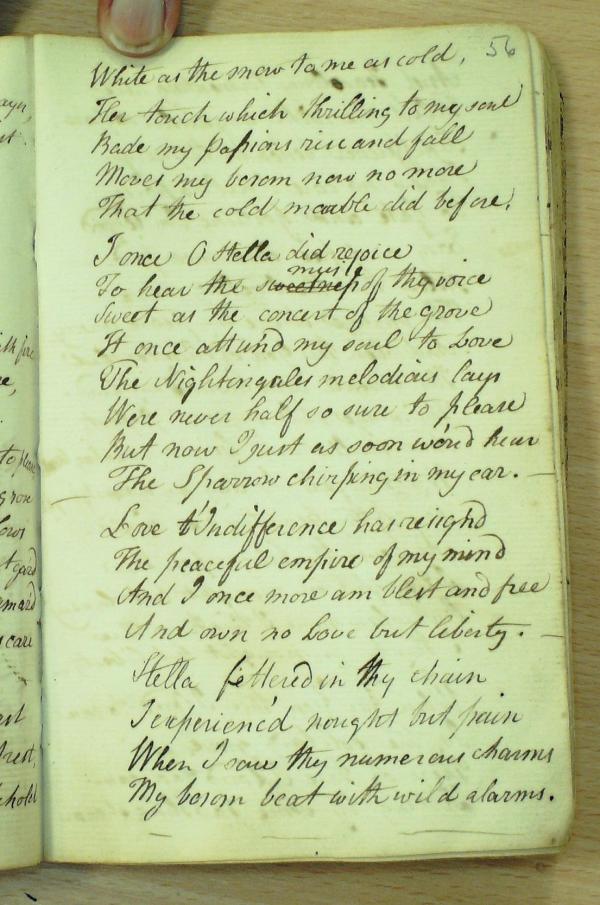 56
White as the snow to me as cold,
Her touch which thrilling to my soul
Bade my passions rise and fall
Moves my bosom now no more
That the cold marble did before.
I once O Stella did rejoice
music
To hear the sweetness of thy voice
Sweet as the concert of the grove
It once attun'd my soul to Love
The Nightingales melodious lays
Were never half so sure to please
But now I just as soon wou'd hear
The Sparrow chirping in my ear. —
Love t'Indifference has resign'd
The peaceful empire of my mind
And I once more am blest and free
And own no Love but liberty. —
Stella fettered in thy chain
I experienc'd nought but pain
When I saw thy numerous charms
My bosom beat with wild alarms.